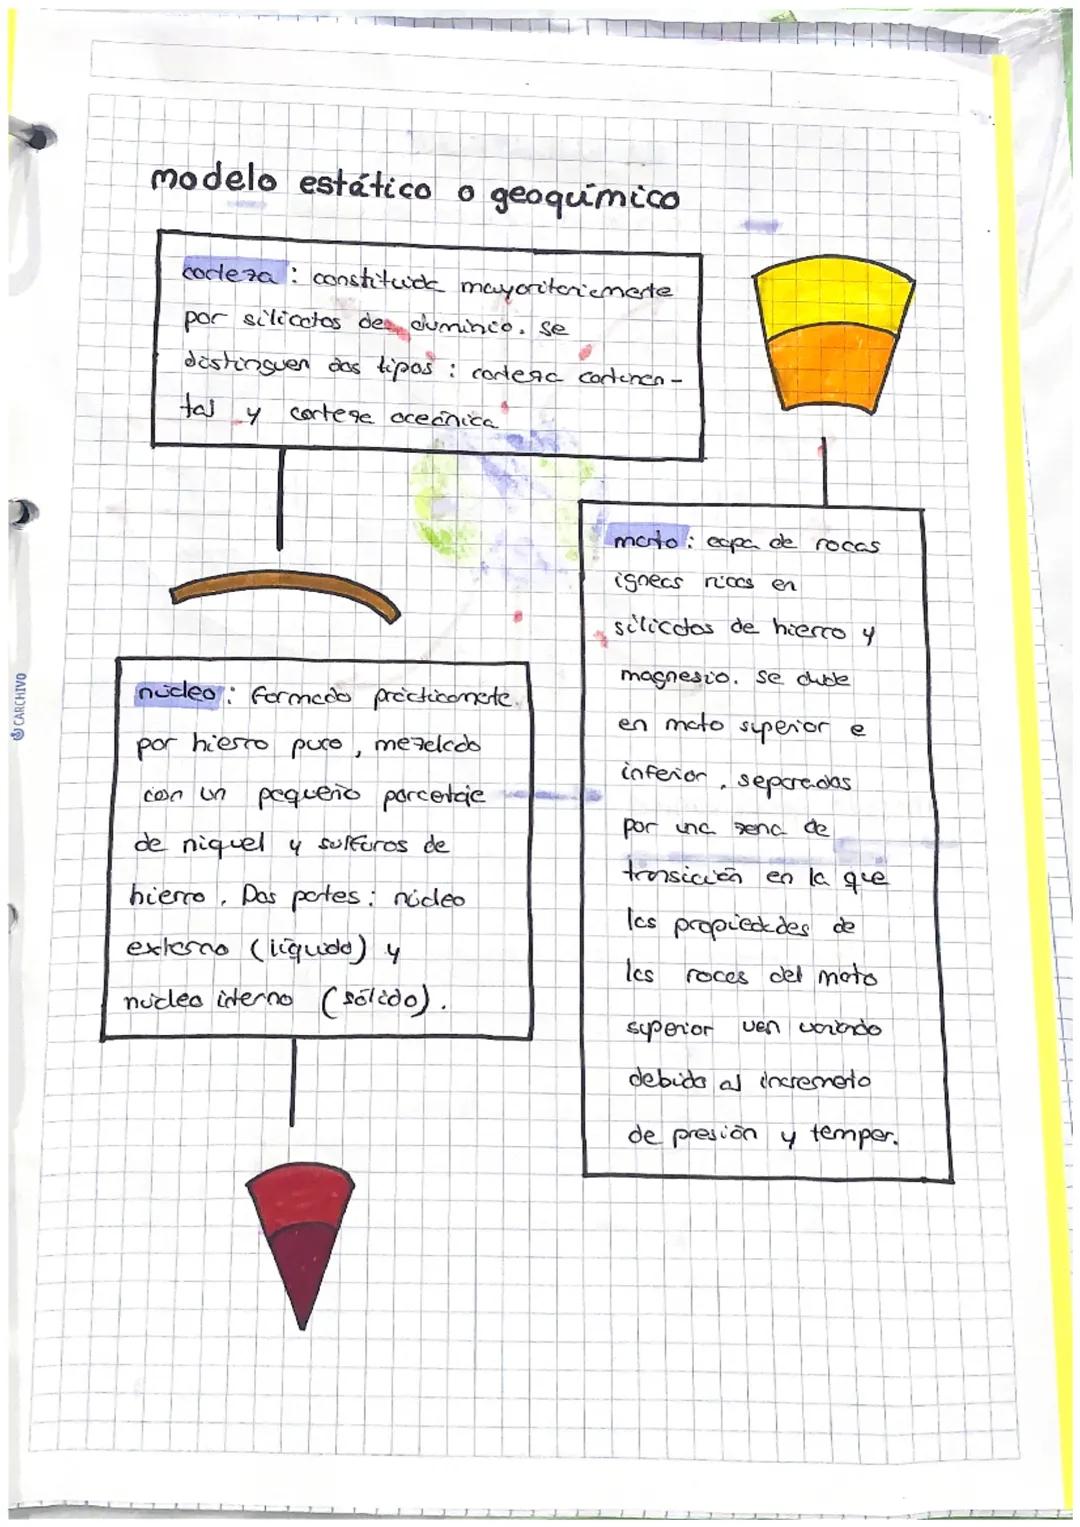 modelo estático o geoquímico
corteza : constituida mayoritariamente
por silicatos de aluminio. se
distinguen dos tipos : corteza continen-
tal y corteza oceánica
manto : capa de rocas
ígneas ricas en
silicatos de hierro y
magnesio. se divide
en manto superior e
inferior, separados
por una zona de
transición en la que
las propiedades de
las rocas del manto
superior van variando
debido al incremento
de presión y temper.
núcleo : formado prácticamente
por hierro puro, mezclado
con un pequeño porcentaje
de niquel y sulfuros de
hierro. Dos partes : núcleo
externo (líquido) y
nucleo interno (sólido).
CARCHIVO